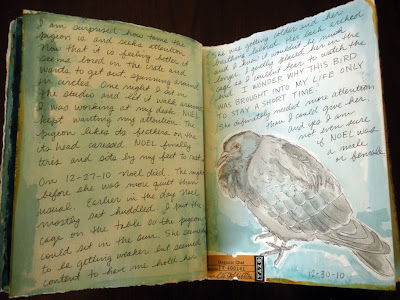 I am surprised how tame the
pigeon is and seeks attention.
Now that it is feeling better it
seems bored in the crate and
wants to get out, spinning around
in circles. One night I sat in
the studio and let it walk around.
I was working at my desk NOEL
kept wanting my attention. The
pigeon likes its feathers on the
its head caressed. NOEL finally
tires and sits by my feet to rest.
On 12-27-10 Noel died. The night
before she was more quiet than
usual. Earlier in the day Noel
mostly sat huddled. I put the
cage on the table so the pigeon
could sit in the sun. She seemed
to be getting weaker but seemed
content to have me hold her.
She was getting colder and her
breathing labored. Her back arched
and I knew it wouldn't be much
longer. I gently placed her in the
cage as I couldn't bear to watch she
died. I WONDER WHY THIS BIRD
WAS BROUGHT INTO MY LIFE ONLY
TO STAY A SHORT TIME.
She definitely needed more attention
than I could give her.
and yes I am
not even sure
if NOEL was
a male
or female.
12-30-10